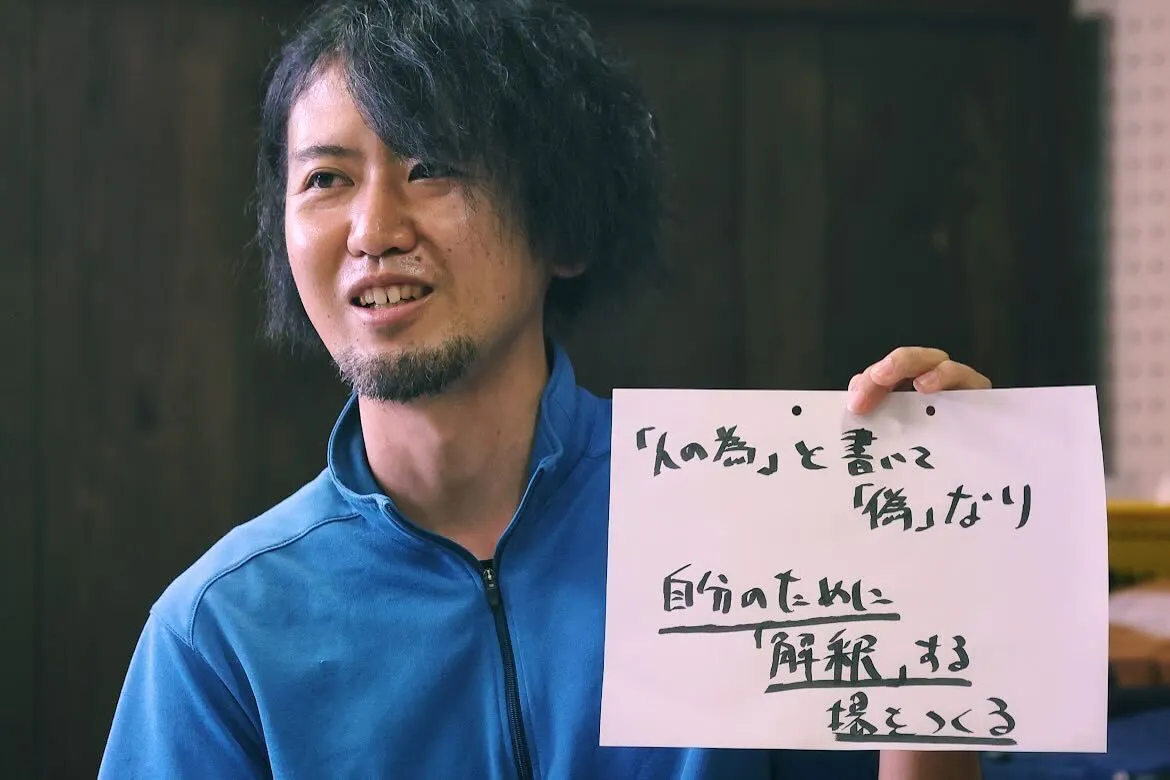 「人の為」と書いて
「偽」なり
自分のために
「解釈」する
場をつくる